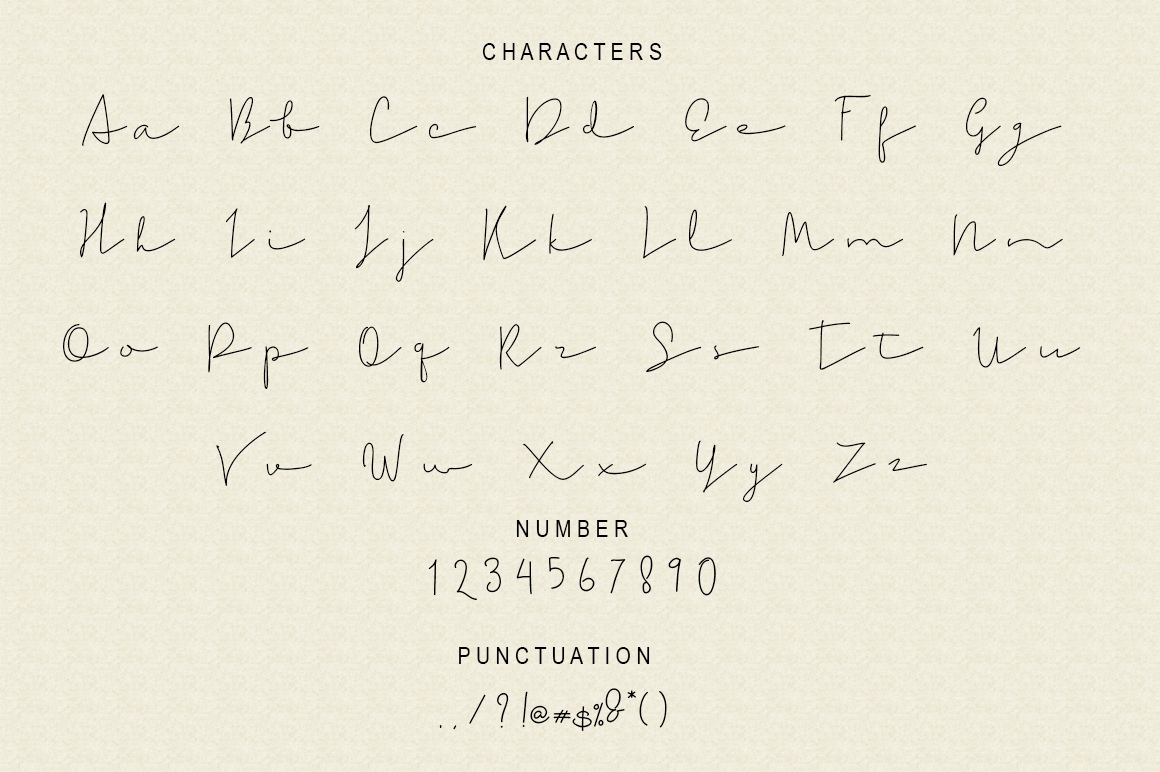 CHARACTERS
Aa Bb Cc Dd Ee Ff Gg
Hh Ii Jj Kk Ll Mm Nn
Oo Pp Qq Rr Ss Tt Uu
Vv Ww Xx Yy Zz
NUMBER
1 2 3 4 5 6 7 8 9 0
PUNCTUATION
. , / ? ! @ # $ % & * ( )